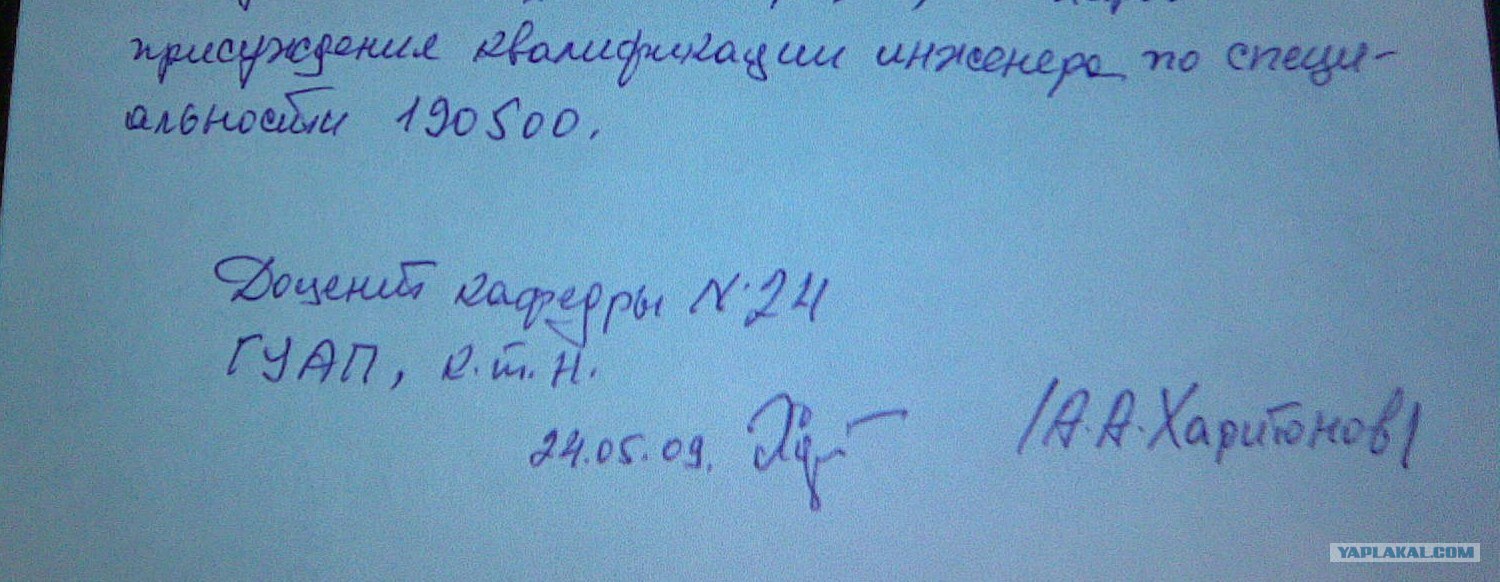 присуждения квалификации инженера по специ-
альности 190500.
Доцент кафедры №24
ГУАП, к.т.н.
24.05.09. /А.А.Харитонов/
YAPLAKAL.COM